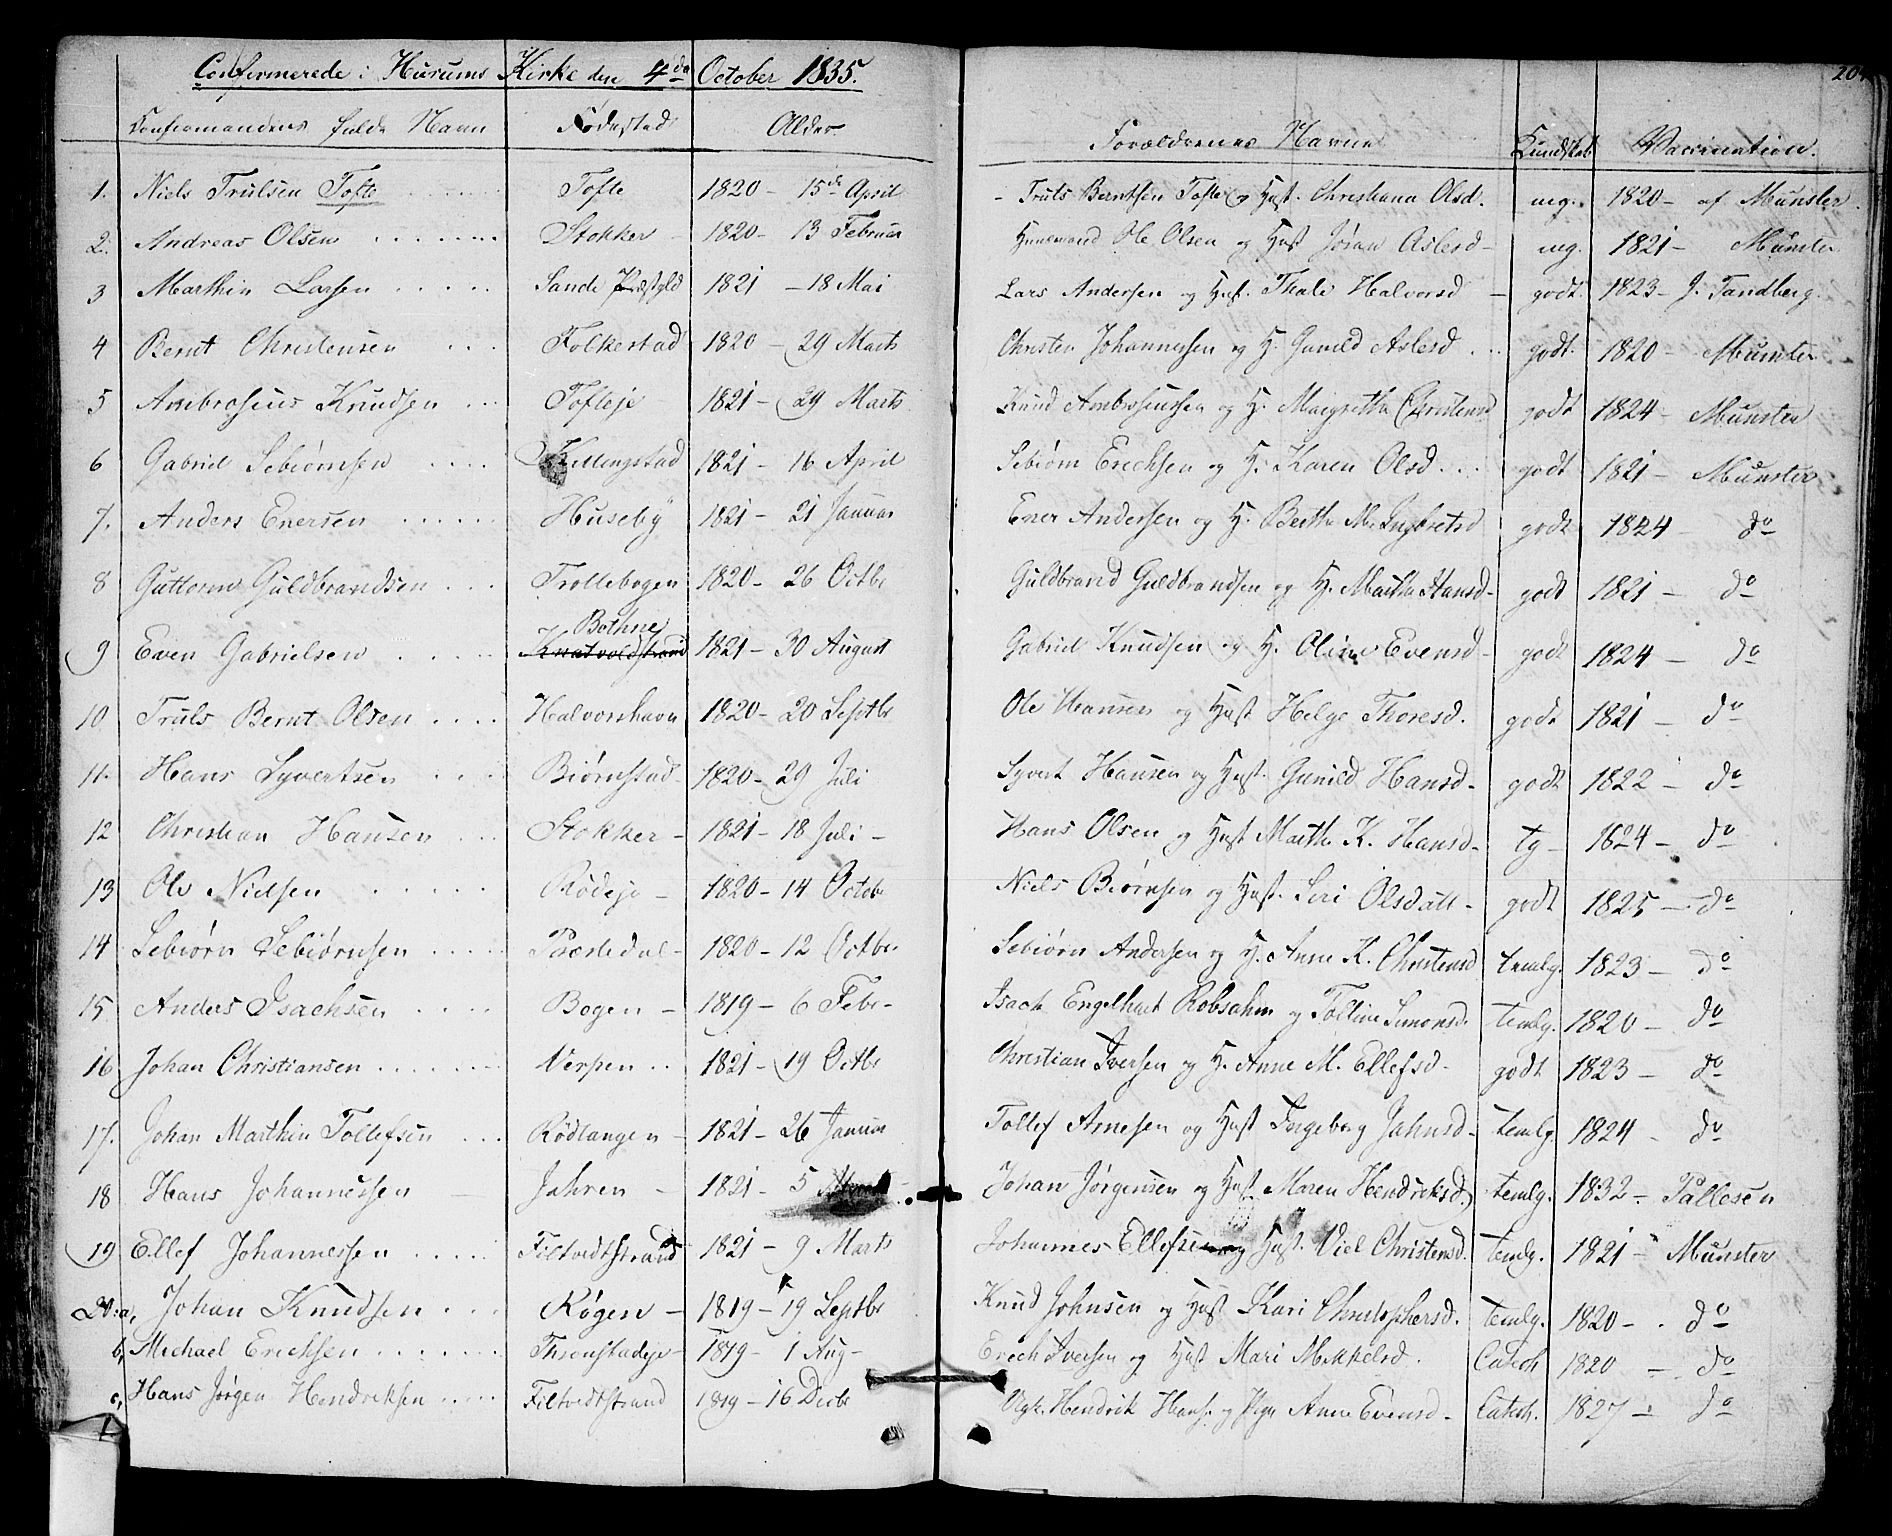 Confirmerede i Hurums Kirke den 4de October 1835. 204
Confirmandens fulde Navn Fødestad Alder Forældrenes Navne Kundskab Vaccination.
1. Niels Trulsen Tofte Tofte 1820 - 15de April - Truls Berntsen Tofte og Hust. Christiana Olsd. mg. 1820 - af Munster.
2. Andreas Olsen Stokker - 1820 - 13 Februar Huusmand Ole Olsen og Hust Jøran Aslesd - mg. 1821 - Munster
3 Marthin Larsen Sande Præstgld 1821 - 18 Mai Lars Andersen og Hust. Thale Halvorsd - godt. 1823 - J. Tandberg.
4 Bernt Christensen Folkestad 1820 - 29 Marts Christen Johannessen og H. Gunild Aslesd godt. 1820 - Munster
5 Ambrosius Knudsen Tofteje 1821 - 29 Marts Knud Ambrosiussen og H. Margretha Christensd godt 1824 - Munster
6 Gabriel Sebiørnsen Killingstad 1821 - 16 April Sebiørn Erichsen og H. Karen Olsd godt 1821 - Munster
7. Anders Enersen Huseby 1821 - 21 Januar Ener Andersen og H. Berthe M. Ingbretsd godt 1824 - do
8 Guttorm Guldbrandsen Trollebogen 1820 - 26 Octbr Guldbrand Guldbrandsen og H. Martha Hansd - godt 1821 - do
Bothne
9 Even Gabrielsen Knatvoldstrand 1821 - 30 August Gabriel Knudsen og H. Oline Evensd - godt 1824 - do
10 Truls Bernt Olsen Halvorshavn 1820 - 20 Septbr Ole Hansen og Hust Helge Thoresd. godt 1821 - do
11. Hans Syvertsen Biørnstad - 1820 - 29 Juli Syvert Hansen og Hust. Gunild Hansd - godt 1822 - do
12 Christian Hansen Stokker - 1821 - 18 Juli - Hans Olsen og Hust Marthe K. Hansd - tg - 1824 - do
13 Ole Nielsen Rødeje - 1820 - 14 Octobr Niels Biørnsen og Hust. Siri Olsdatt - godt 1825 - do
14 Sebiørn Sebiørnsen Præstedal - 1820 - 12 Octbr Sebiørn Andersen og H. Anne K. Christensd temlg. 1823 - do
15 Anders Isachsen Bogen - 1819 - 6 Febr - Isach Engelhart Robsahm og Tolline Simonsd. temlg. 1820 - do
16 Johan Christiansen Verpen 1821 - 19 Octbr Christian Iversen og H. Anne M. Ellefsd - godt 1823 - do
17. Johan Marthin Tollefsen Rødtangen - 1821 - 26 Januar Tollef Arnesen og Hust Ingeborg Jahnsd - temlg. 1824 - do
18 Hans Johannessen Jahren - 1821 - 5 Johan Jørgensen og Hust Maren Hendriksd temlg. 1832 - Pallesen
19 Ellef Johannessen Filtvedtstrand 1821 - 9 Marts Johannes Ellefsen og Hust. Viel Christensd. temlg. 1821 - Munster
20: a, Johan Knudsen Røgen - 1819 - 19 Septbr Knud Johnsen og Hust Kari Christophersd. temlg. 1820 - do
b, Michael Erichsen Thronstadeje - 1819 - 1 Aug - Erich Iversen og Hust Mari Mikkelsd. Catech 1820 - do
c, Hans Jørgen Hendriksen Filtvedtstrand 1819 - 16 Decbr Ugk. Hendrik Hans. og Pige Anne Evensd - Catech. 1827 - do